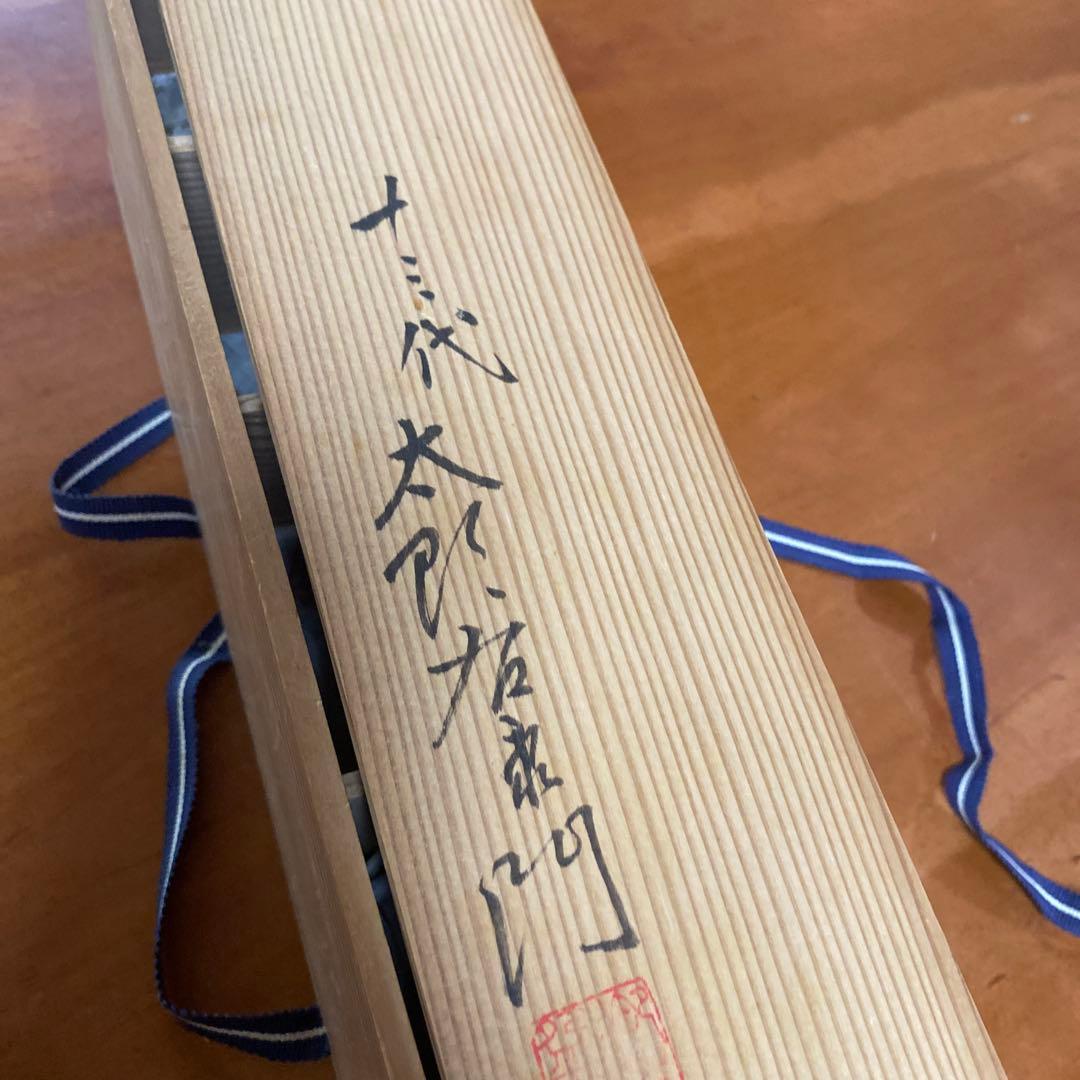 十三代 太郎右衛門